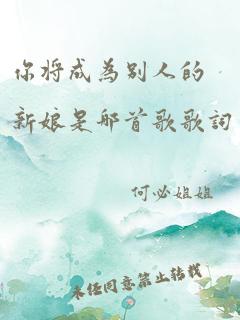 你将成为别人的
新娘是那首歌歌词
何必姐姐
未经同意禁止转载